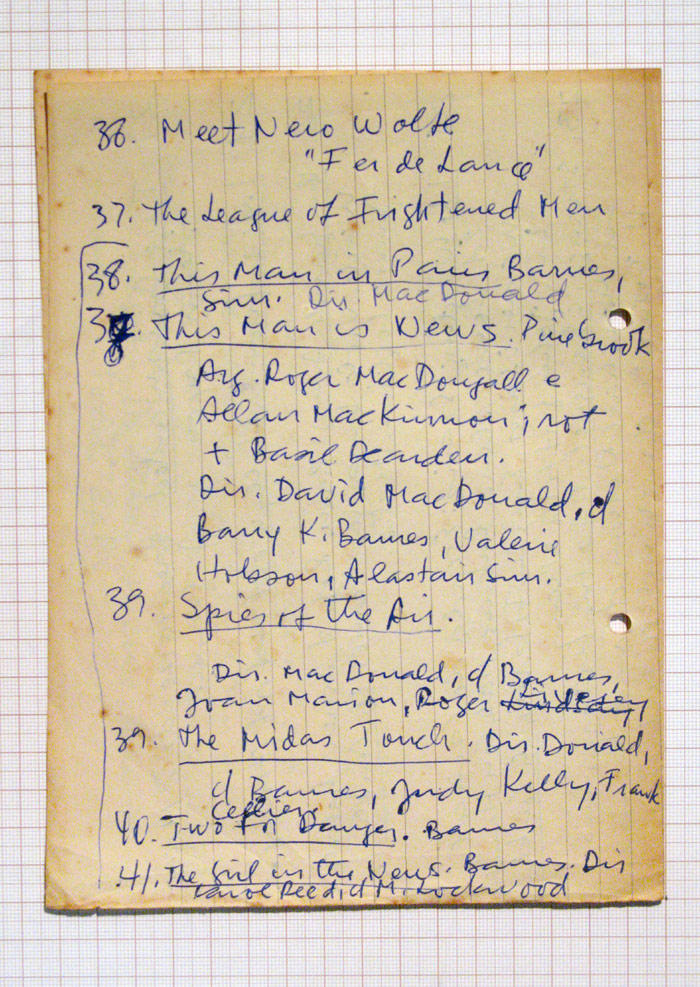 36. Meet Nero Wolfe
"Fer de Lance"
37. The League of Frightened Men
38. This Man in Paris Barnes,
Sim. Dir. MacDonald
38. This Man is News. Pinebrook
Arg. Roger MacDougall e
Allan MacKinnon; rot
+ Basil Dearden.
Dir. David MacDonald, d
Barry K. Barnes, Valerie
Hobson, Alastair Sim.
39. Spies of the Air.
Dir. MacDonald, d Barnes,
Joan Marion, Roger
39. The Midas Touch. Dir. Donald,
d Barnes, Judy Kelly, Frank
Cellier.
40. Two for Danger. Barnes
41. The Girl in the News. Barnes. Dir
Carol Reed, d M. Lockwood